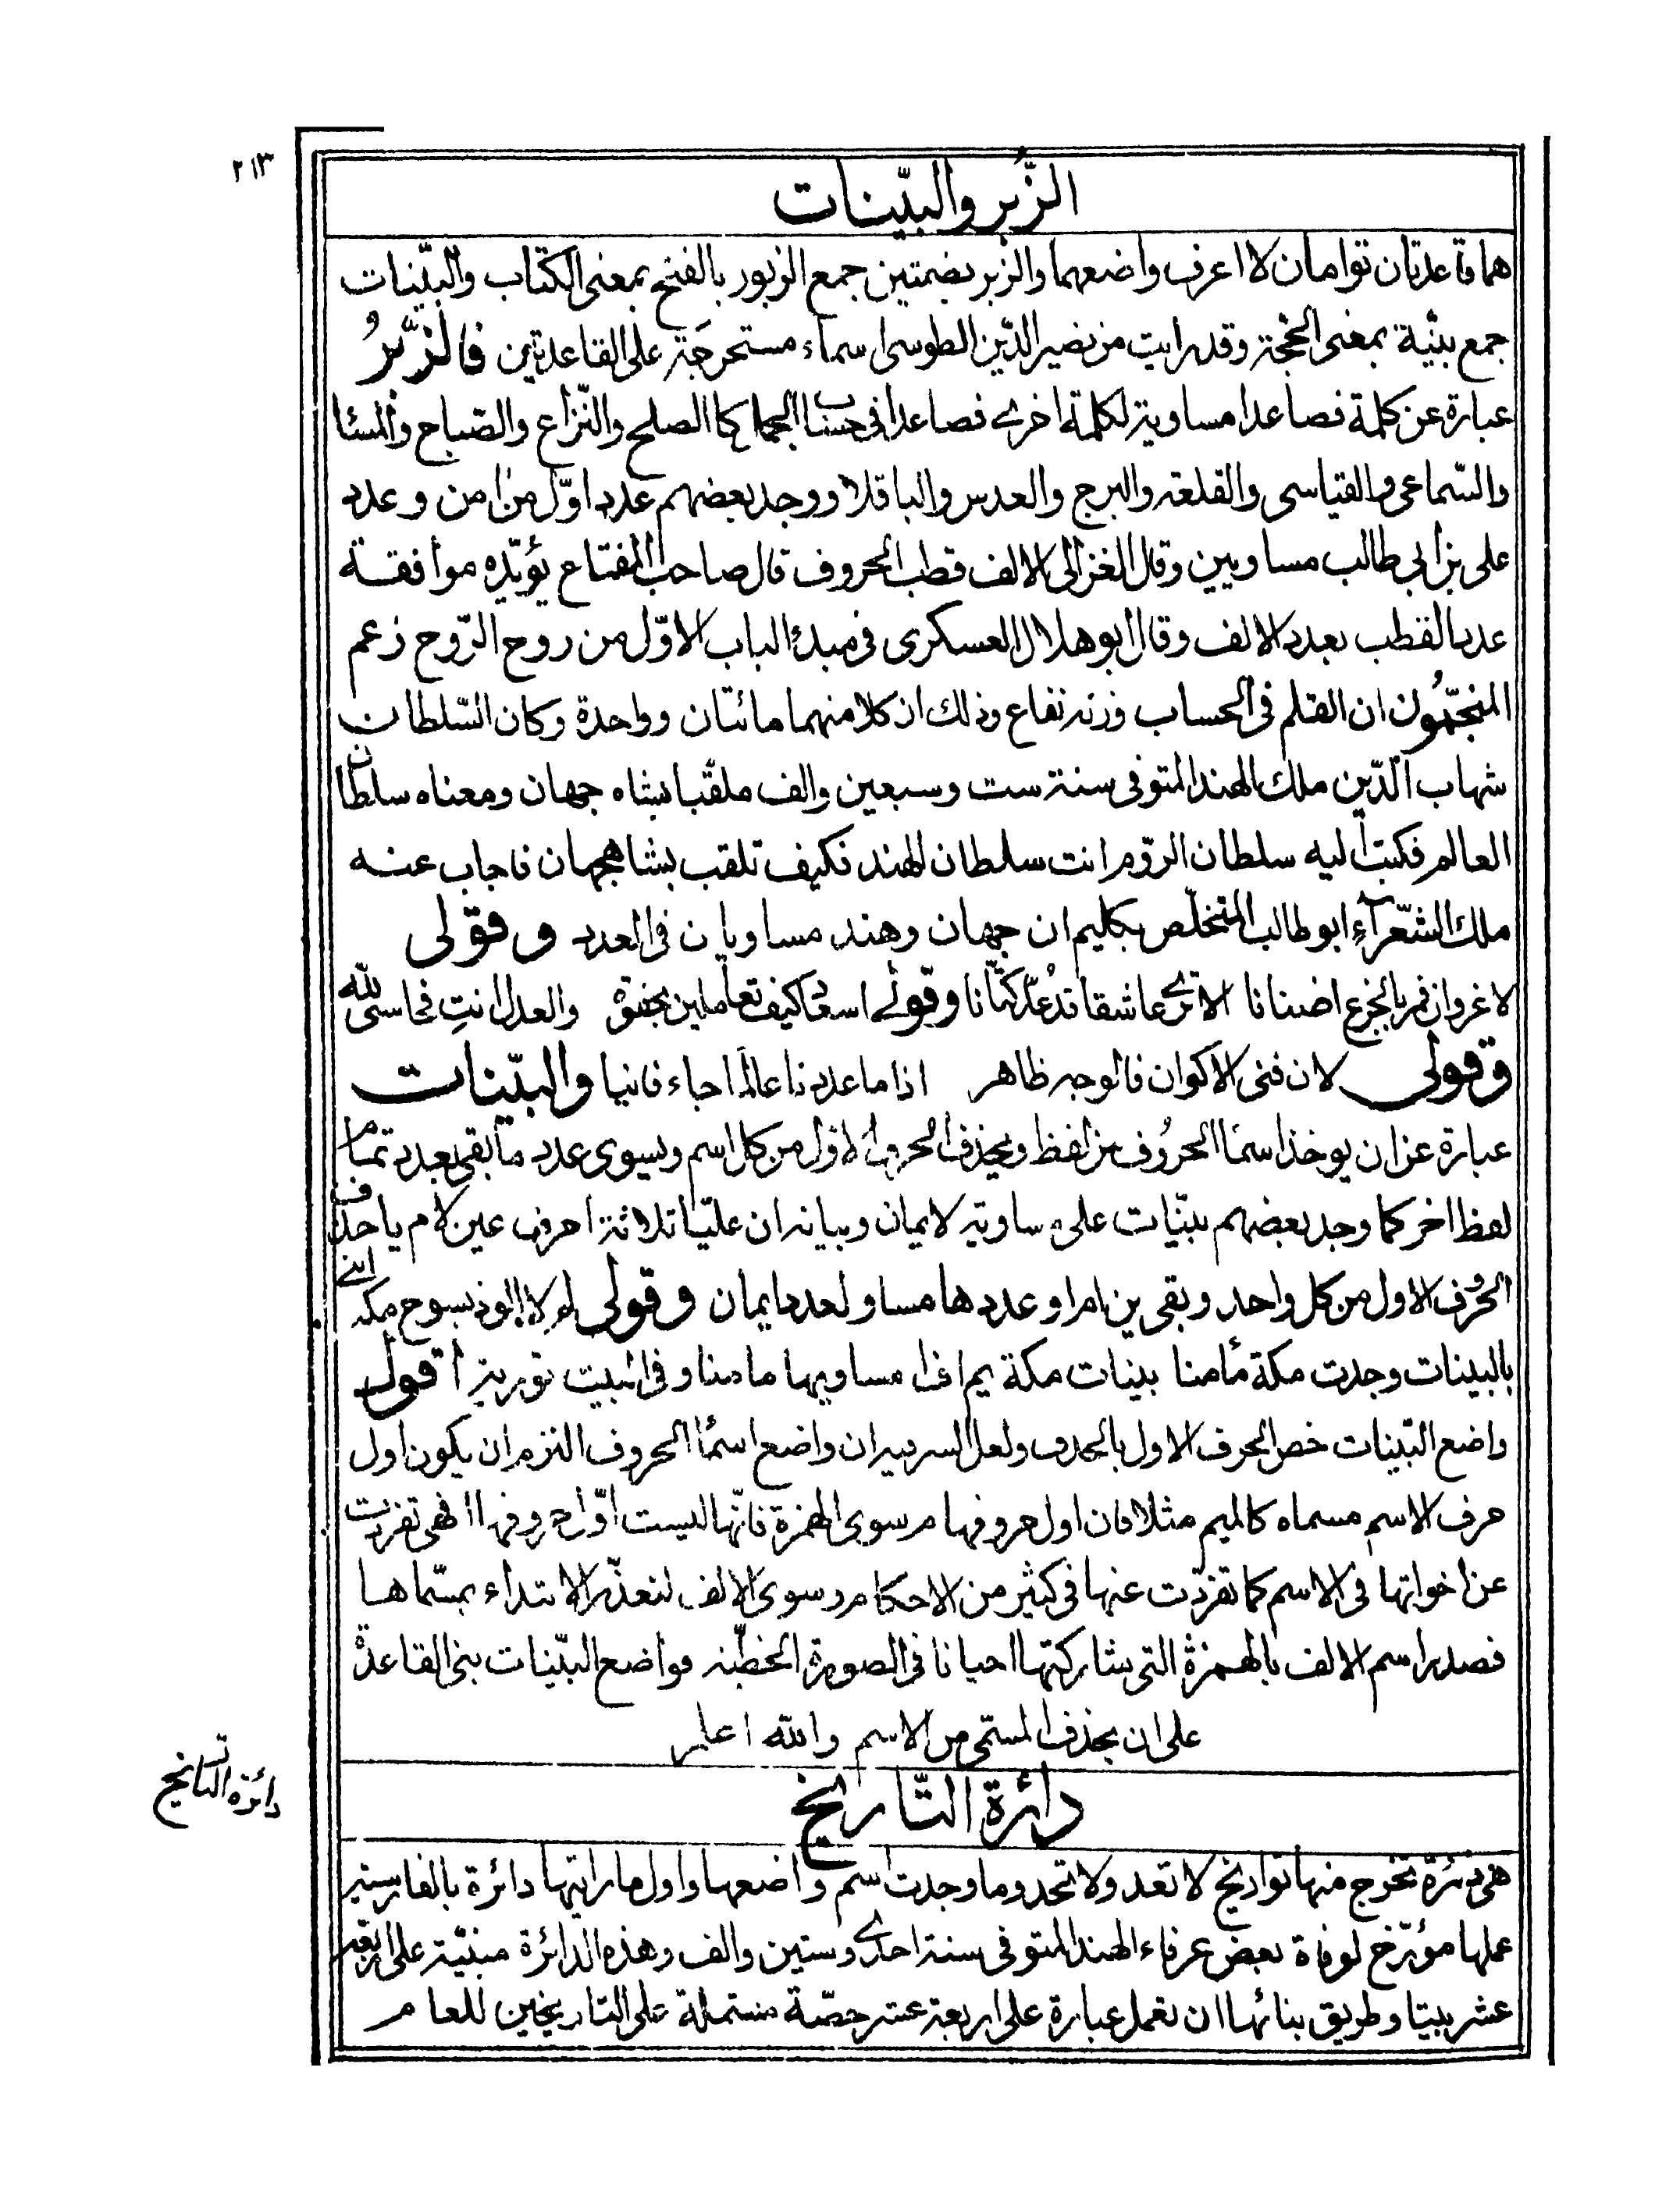 ٢١٣
الزُّبر والبيّنات
هما قاعدتان توامان لا اعرف واضعهما والزبر بضمتين جمع الزبور بالفتح بمعنى الكتاب والبيّنات
جمع بيّنة بمعنى الحجّة وقد رايت من نصير الدّين الطوسى اسماء مستخرجَة على القاعدتين فالزُّبرُ
عبارة عن كلمة فصاعدا مساوية لكلمة اخرى فصاعدا فى حساب الجمل كالصلح والنّزاع والصّباح والمسا
والسّماعى والقياسى والقلعة والبرج والعدس والباقلا ووجد بعضهم عدد اوّل من امن وعدد
على بن ابى طالب مساويين وقال الغزالى الالف قطب الحروف قال صاحب المفتاح يؤيّده موافقة
عدد القطب بعدد الالف وقال ابو هلال العسكرى فى مبدء الباب الاوّل من روح الرّوح زعم
المنجّمُون ان القلم فى الحساب وزنه نفاع وذلك ان كلا منهما مائتان وواحدة وكان السّلطان
شهاب الدّين ملك الهند المتوفى سنة ست وسبعين والف ملقّبا بشاه جهان ومعناه سلطان
العالم فكتب اليه سلطان الرّوم انت سلطان الهند فكيف تلقب بشاهجهان فاجاب عنه
ملك الشّعرآءِ ابو طالب المتخلّص بكليم ان جهان وهند مساويان فى العدد وقولى
لا غرو ان فر بالجزع اضنانا الا ترى عاشقا قد عُدّ كتّانا وقولى اسعاد كيف تعاملين بجفوة والعدل انتِ فحاسبى لله
وقولى لان فنى الاكوان فالوجه ظاهر اذا ما عددنا عالما جاء فانيا والبيّنات
عبارة عن ان يوخذ اسما الحرُوف من لفظ ويحذف الحروف الاول من كل اسم ويسوى عدد ما بقى بعدد تمام
لفظ اخر كما وجد بعضهم بيّنات على مساوية لايمان وبيانه ان عليّا ثلاثة احرف عين لام يا حذف
الحروف الاول من كل واحد وبقى ين ام ا وعددها مساو لعدد ايمان وقولى لم لا الوذ بسوح مكة اننى
بالبينات وجدت مكة مأمنا بينات مكة يم اف ا مساويها مامنا وفى البيت تورية اقول
واضع البّينات خص الحرف الاول بالحذف ولعل السر فيه ان واضع اسمأ الحروف التزم ان يكون اول
حرف الاسم مسماه كالميم مثلا فان اول حروفها م سوى الهمزة فانّها ليست اوّل حروفها ا فهى تفردت
عن اخواتها فى الاسم كما تفرّدت عنها فى كثير من الاحكام وسوى الالف لتعذّر الابتداء بمسمّاها
فصدر اسم الالف بالهمزة التى يشاركتها احيانا فى الصورة الخطّية فواضع البيّنات بنى القاعدة
على ان يحذف المسمّى من الاسم والله اعلم
دائرة التّاريخ
دائرة التّاريخ
هى دائرة تخرج منها تواريخ لا تعد ولا تحد وما وجدت اسم واضعها واول ما رايتها دائرة بالفارسية
عملها مؤرّخ لوفاة بعض عرفاء الهند المتوفى سنة احدى وستين والف وهذه الدائرة مبنيّة على اربعة
عشر بيتا وطريق بنائها ان تعمل عبارة على اربعة عشر حصّة مشتملة على التاريخين للعام